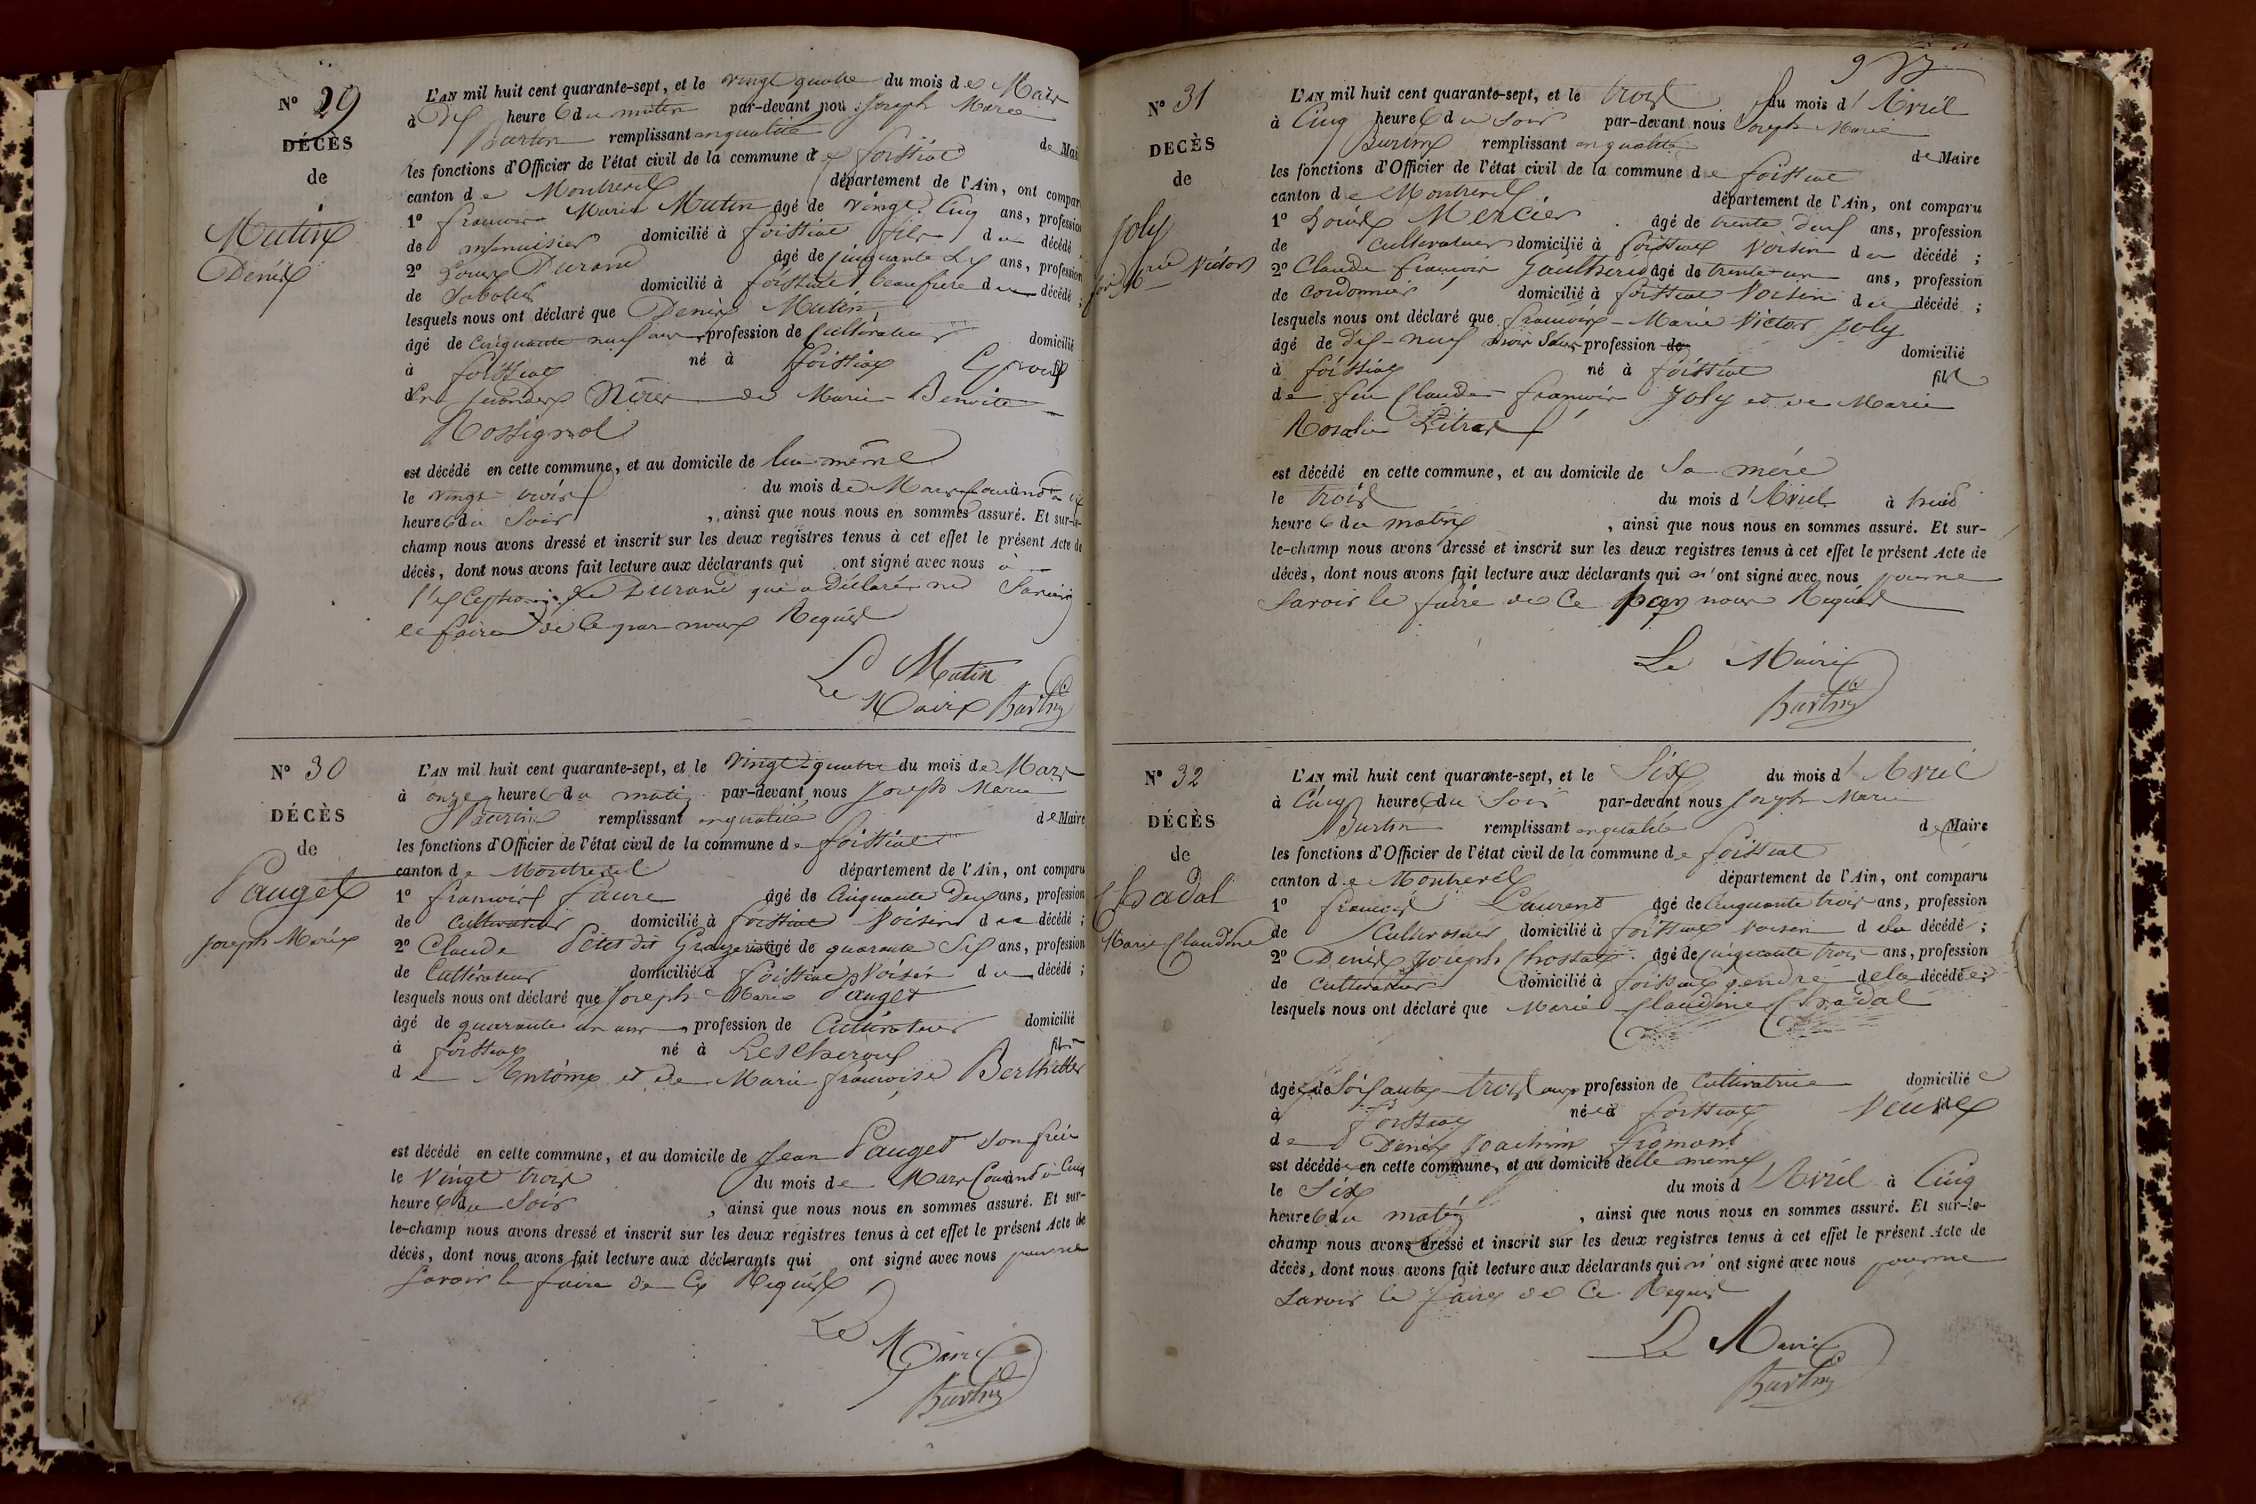 N° 29
DÉCÈS
de
Mutin
Denis
L'AN mil huit cent quarante-sept, et le vingt quatre du mois de Mars
à Dix heures du matin par-devant nous Joseph Marie
Burtin remplissant en qualité de Maire
les fonctions d'Officier de l'état civil de la commune de foissiat
canton de Montrevel département de l'Ain, ont comparu
1° francois Marie Mutin âgé de vingt Cinq ans, profession
de menuisier domicilié à foissiat fils du décédé
2° Louis Durand âgé de Cinquante Six ans, profession
de Sabotier domicilié à foissiat beaufrere du décédé ;
lesquels nous ont déclaré que Denis Mutin
âgé de Cinquante neuf ans profession de Cultivateur domicilié
à foissiat né à foissiat Epoux
en secondes Nôces de Marie-Benoite
Rossignol
est décédé en cette commune, et au domicile de lui même
le vingt trois du mois de Mars Courant à six
heures du Soir, ainsi que nous nous en sommes assuré. Et sur-le-
champ nous avons dressé et inscrit sur les deux registres tenus à cet effet le présent Acte de
décès, dont nous avons fait lecture aux déclarants qui ont signé avec nous à
l'exception de Durand qui a déclaré ne Savoir
le faire de ce par nous Requis
Mutin
Le Maire Burtin
N° 30
DÉCÈS
de
Pauget
Joseph Marie
L'AN mil huit cent quarante-sept, et le vingt-quatre du mois de Mars
à onze heures du matin par-devant nous Joseph Marie
Burtin remplissant en qualité de Maire
les fonctions d'Officier de l'état civil de la commune de foissiat
canton de Montrevel département de l'Ain, ont comparu
1° francois faure âgé de Cinquante Deux ans, profession
de Cultivateur domicilié à foissiat Voisin du décédé ;
2° Claude Petit dit âgé de quarante Six ans, profession
de Cultivateur domicilié à foissiat Voisin du décédé ;
lesquels nous ont déclaré que Joseph Marie Pauget
âgé de quarante un ans profession de Cultivateur domicilié
à foissiat né à Lescheroux fils
de Antoine et de Marie françoise Berthillier
est décédé en cette commune, et au domicile de Jean Pauget son frère
le Vingt trois du mois de Mars Courant à Cinq
heures du Soir, ainsi que nous nous en sommes assuré. Et sur-
le-champ nous avons dressé et inscrit sur les deux registres tenus à cet effet le présent Acte de
décès, dont nous avons fait lecture aux déclarants qui ont signé avec nous pour ne
savoir le faire de Ce Requis
Le Maire
Burtin
N° 31
DECÈS
de
Joly
Victor
L'AN mil huit cent quarante-sept, et le trois du mois d'Avril
à Cinq heures du Soir par-devant nous Joseph Marie
Burtin remplissant en qualité de Maire
les fonctions d'Officier de l'état civil de la commune de foissiat
canton de Montrevel département de l'Ain, ont comparu
1° Louis Mercier âgé de trente deux ans, profession
de Cultivateur domicilié à foissiat Voisin du décédé ;
2° Claude françois âgé de trente-un ans, profession
de Cordonnier domicilié à foissiat Voisin du décédé ;
lesquels nous ont déclaré que françois-Marie Victor Joly
âgé de dix-neuf profession de domicilié
à foissiat né à foissiat fils
de feu Claude-françois Joly et de Marie
Rosalie
est décédé en cette commune, et au domicile de Sa mère
le trois du mois d'Avril à huit
heures du matin, ainsi que nous nous en sommes assuré. Et sur-
le-champ nous avons dressé et inscrit sur les deux registres tenus à cet effet le présent Acte de
décès, dont nous avons fait lecture aux déclarants qui n'ont signé avec nous pour ne
Savoir le faire de Ce par nous Requis
Le Maire
Burtin
N° 32
DÉCÈS
de
Chadal
Marie Claudine
L'AN mil huit cent quarante-sept, et le Six du mois d'Avril
à Cinq heures du Soir par-devant nous Joseph Marie
Burtin remplissant en qualité de Maire
les fonctions d'Officier de l'état civil de la commune de foissiat
canton de Montrevel département de l'Ain, ont comparu
1° françois Laurent âgé de Cinquante trois ans, profession
de Cultivateur domicilié à foissiat voisin de la décédé ;
2° Denis Joseph âgé de Cinquante trois ans, profession
de Cultivateur domicilié à foissiat gendre de la décédée ;
lesquels nous ont déclaré que Marie Claudine Chadal
agée de Soixante-trois ans profession de Cultivatrice domiciliée
à foissiat née à foissiat Veuve
de Denis Joachim fromont
est décédée en cette commune, et au domicile delle même
le Six du mois d'Avril à Cinq
heures du matin, ainsi que nous nous en sommes assuré. Et sur-le-
champ nous avons dressé et inscrit sur les deux registres tenus à cet effet le présent Acte de
décès, dont nous avons fait lecture aux déclarants qui n'ont signé avec nous pour ne
Savoir le faire de Ce Requis
Le Maire
Burtin